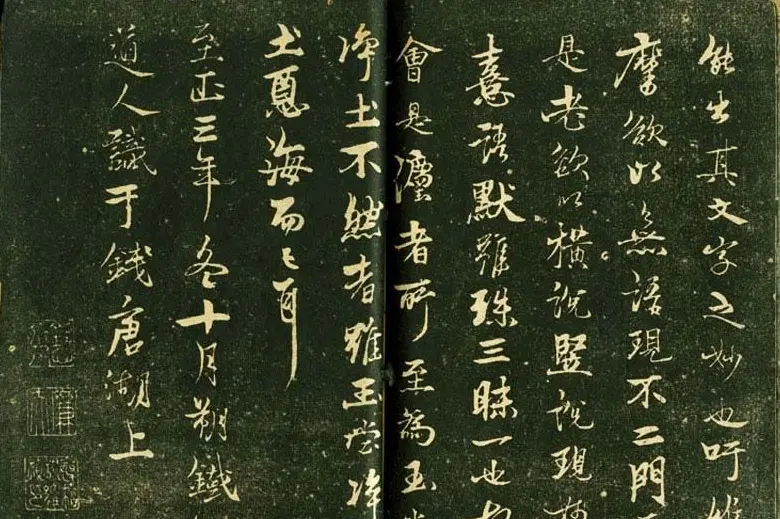 能出其文字之妙也吁維
摩欲以無語現不二門
是老欲以橫說竪說現妙
憙語默雖殊三昧一也
會是者所至為玉
淨土不然者雖玉堂淨
土海而已耳
至正三年冬十月朔鐵
道人識于錢唐湖上